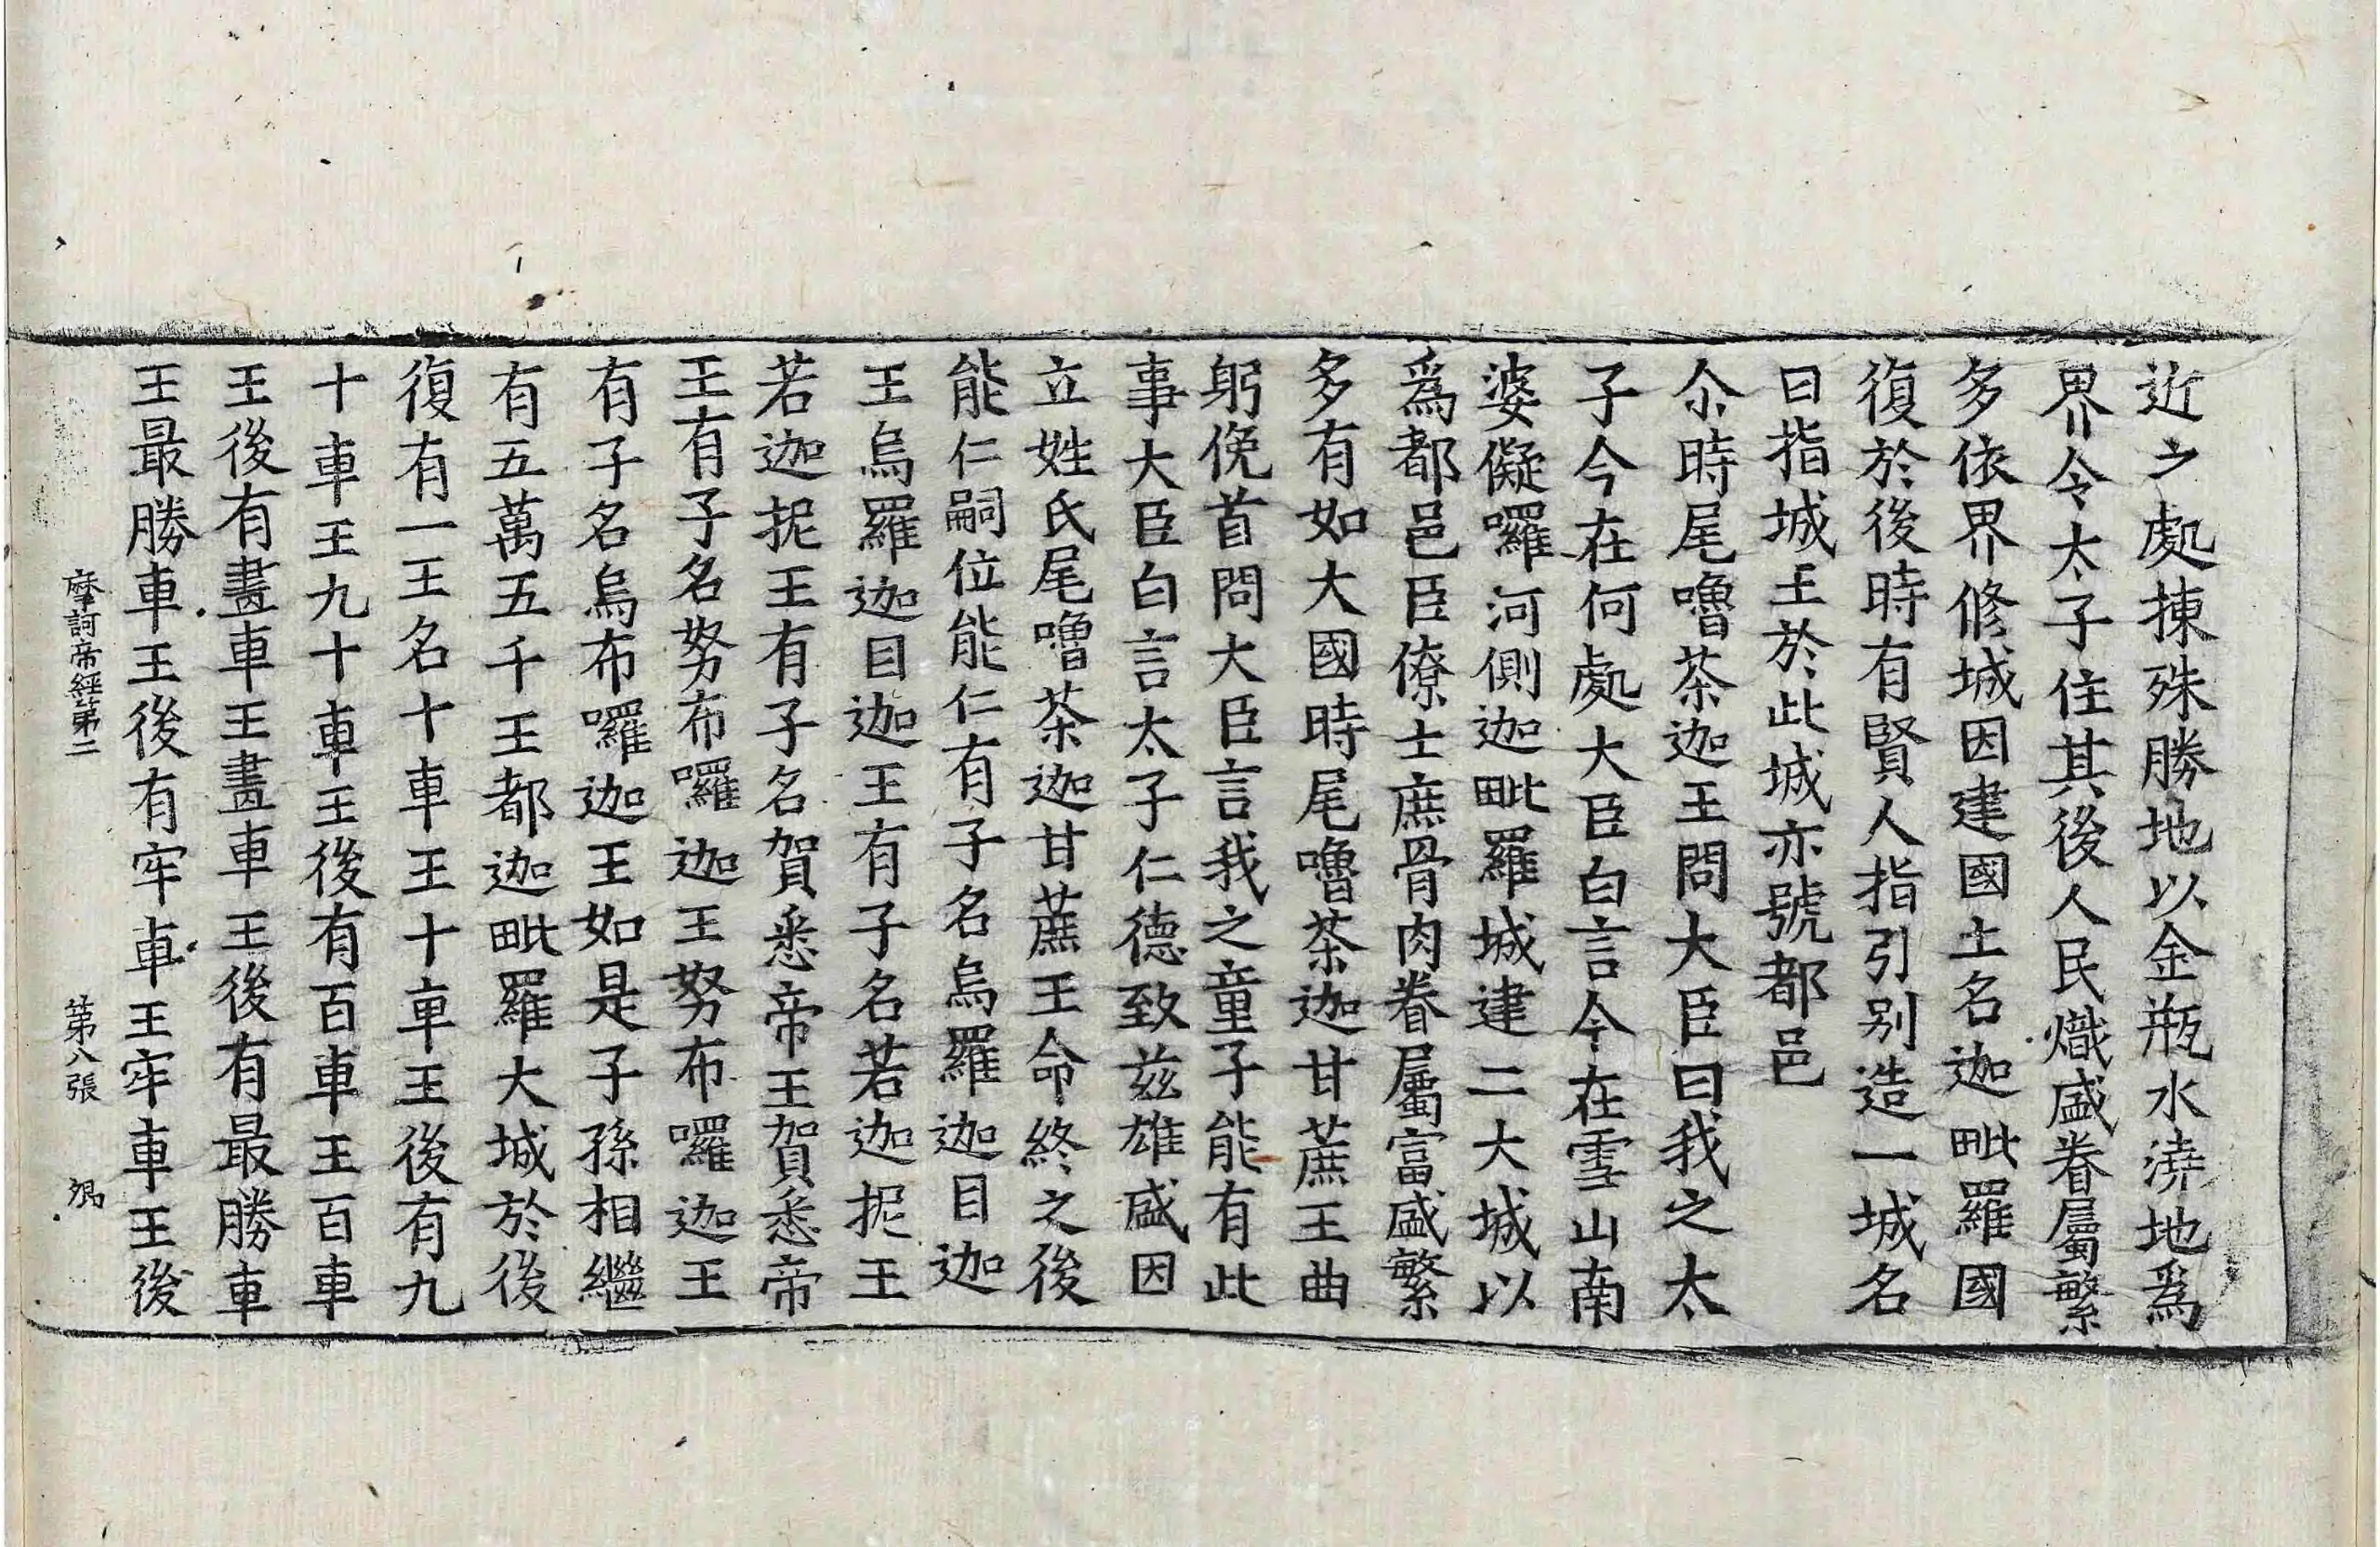 近之處揀殊勝地以金瓶水澆地爲
界令太子住其後人民熾盛眷屬繁
多依界修城因建國土名迦毗羅國
復於後時有賢人指引别造一城名
曰指城王於此城亦號都邑
尒時尾嚕茶迦王問大臣曰我之太
子今在何處大臣白言今在雪山南
婆儗囉河側迦毗羅城建二大城以
爲都邑臣僚士庶骨肉眷屬富盛繁
多有如大國時尾嚕茶迦甘蔗王曲
躬俛首問大臣言我之童子能有此
事大臣白言太子仁德致兹雄盛因
立姓氏尾嚕茶迦甘蔗王命終之後
能仁嗣位能仁有子名烏羅迦目迦
王烏羅迦目迦王有子名若迦抳王
若迦抳王有子名賀悉帝王賀悉帝
王有子名努布囉迦王努布囉迦王
有子名烏布囉迦王如是子孫相繼
有五萬五千王都迦毗羅大城於後
復有一王名十車王十車王後有九
十車王九十車王後有百車王百車
王後有畫車王畫車王後有最勝車
王最勝車王後有牢車王牢車王後
摩訶帝經第二 第八張